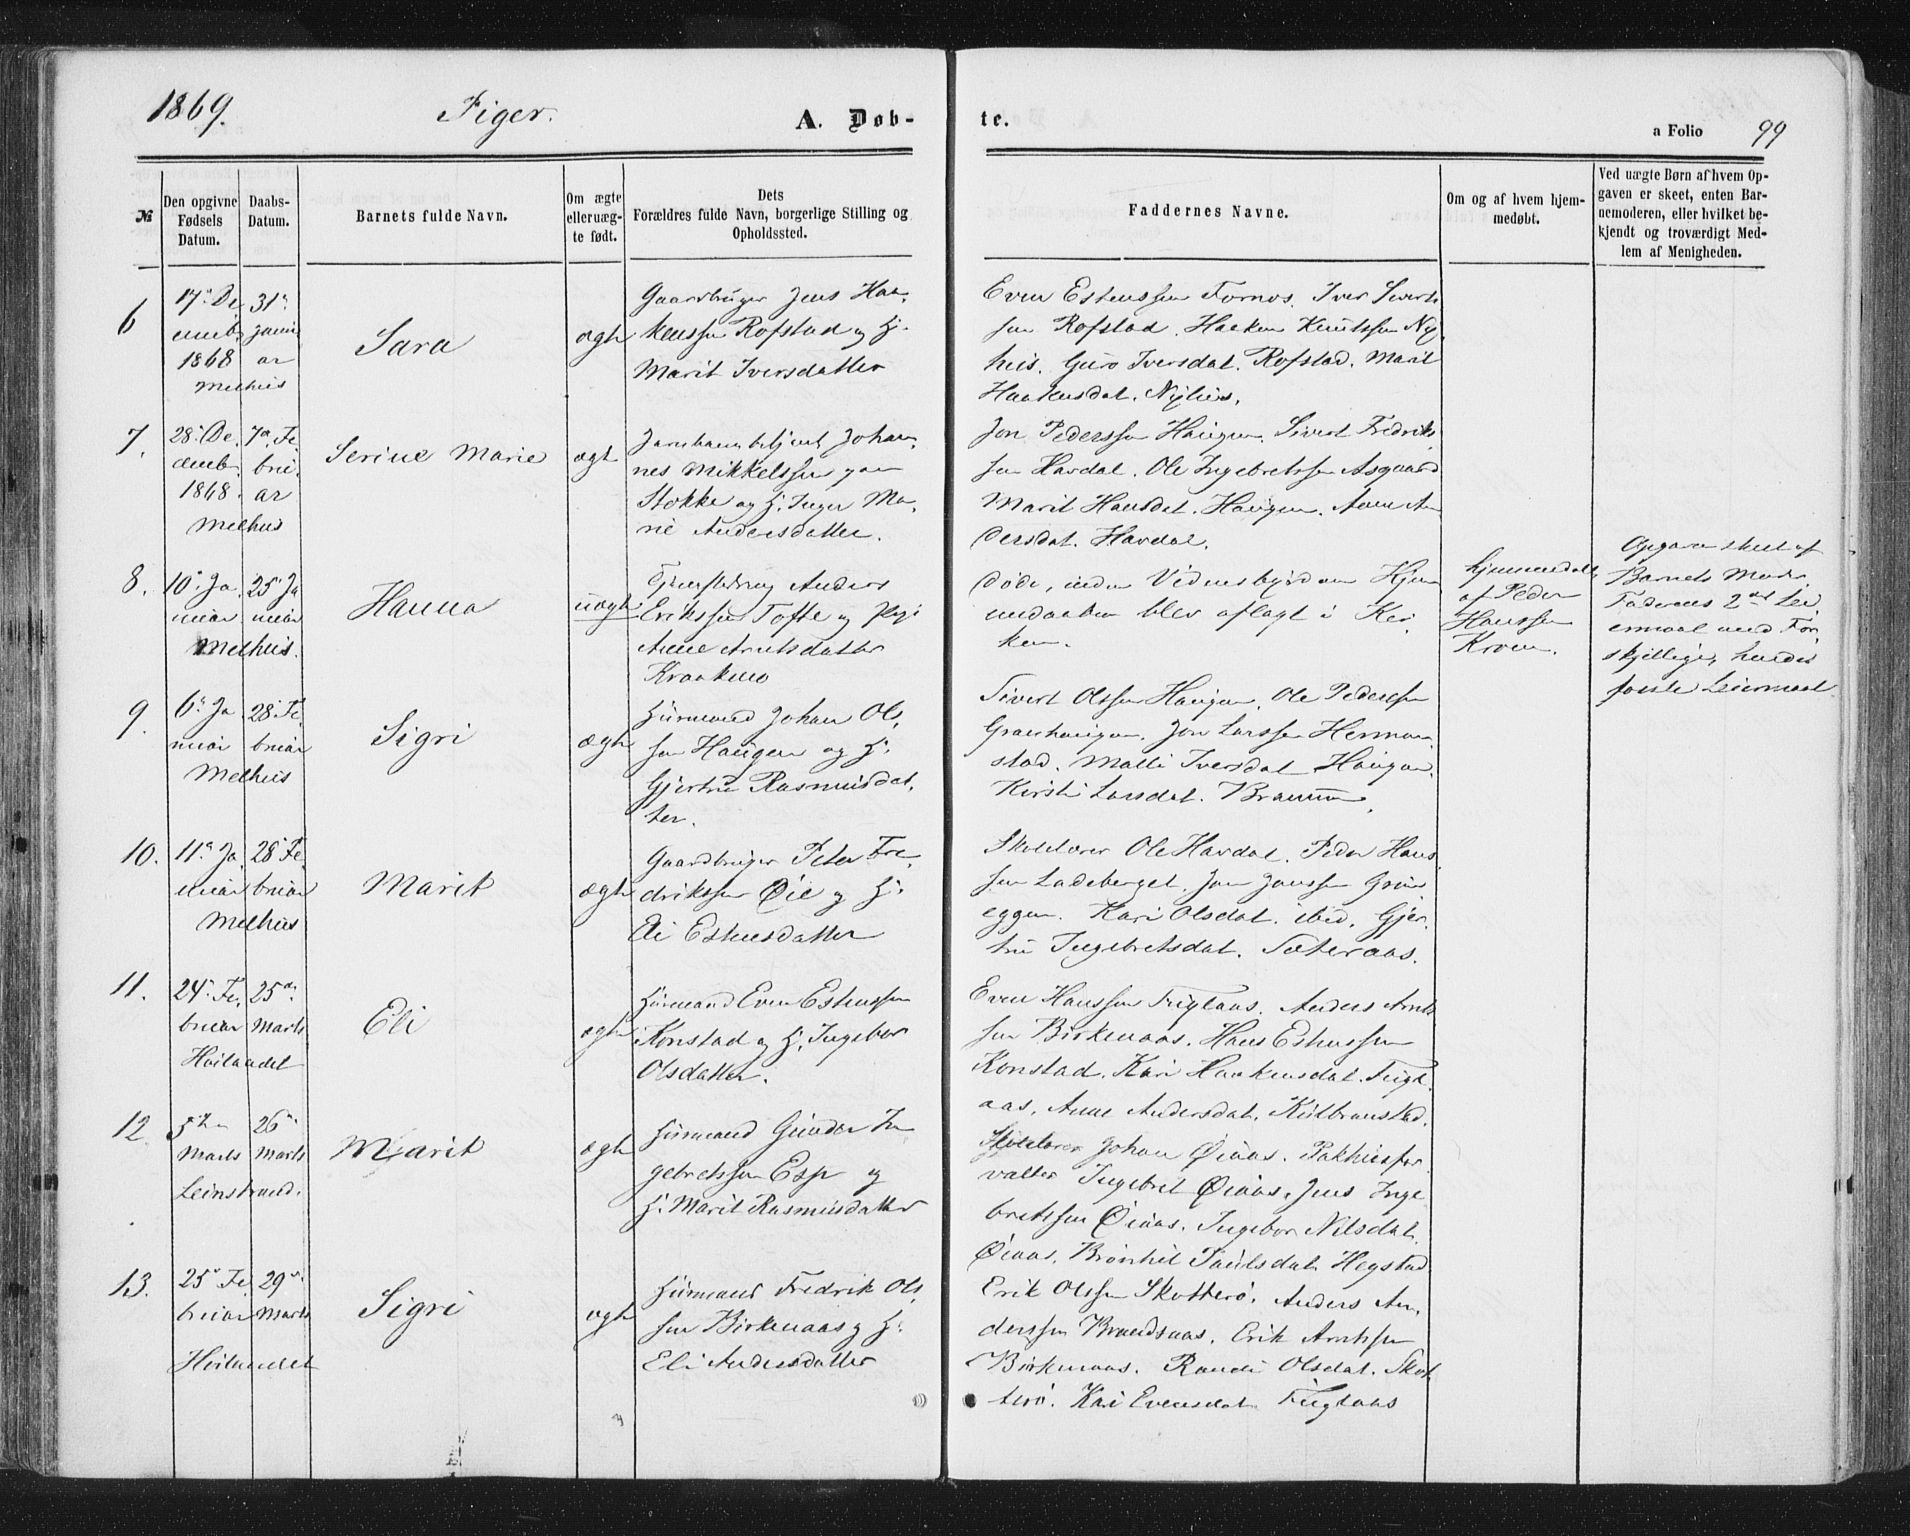 1869.
Piger.
A. Døb-
te.
a Folio 99
№
Den opgivne
Fødsels
Datum.
Daabs-
Datum.
Barnets fulde Navn.
Om ægte
eller uæg-
te født.
Dets
Forældres fulde Navn, borgerlige Stilling og
Opholdssted.
Faddernes Navne.
Om og af hvem hjem-
medøbt.
Ved uægte Børn af hvem Op-
gaven er skeet, enten Bar-
nemoderen, eller hvilket be-
kjendt og troværdigt Med-
lem af Menigheden.
6
17de De
cemb.
1868
31te
Janu
ar
Melhus
Sara
ægte
Gaardbruger Jens Haa-
kenssen Rofstad og H.
Marit Iversdatter
Even Estenssen Fornos. Iver Sivert
sen Rofstad. Haaken Knutssen Ny
hus. Guro Iversdat. Rofstad. Marit
Haakensdat. Nyhus.
7.
28. De
cemb.
1868.
7de Fe
bru
ar
Melhus
Serine Marie
ægte
Jernbanebetjent Johan-
nes Mikkelssen paa
Stokke og H. Inger Ma-
rie Andersdatter.
Jon Pederssen Haugen. Sivert Fredriks
sen Havdal. Ole Ingebretssen Asgaard
Marit Hansdat. Haugen. Anne An
dersdat. Havdal.
8.
10de Ja
nuar
25de Ja
nuar
Melhus.
Hanna
uægte
Anders
Erikssen Tofte og Pige
Anne Arntsdatter
Kraakmo
Døde, inden Vidnesbyrd om Hjem
medaaben blev aflagt i Kir-
ken.
hjemmedøbt
af Peder
Hanssen
Kroen.
Opgave skeet af
Barnets Moder.
Faderens 2det Lei-
ermaal med For-
skjellige, hendes
første Leiermaal.
9.
6te Ja
nuar
28. Fe
bruar
Melhus
Sigri
ægte
Huusmand Johan Ols-
sen Haugen og H.
Gjertru Rasmusdat-
ter.
Sivert Olssen Haugen. Ole Pederssen
Granhaugen. Jon Larssen Herman-
stad. Malli Iversdat Haugen.
Kirsti Larsdat. Braaun.
10.
11te Ja
nuar
28. Fe
bruar
Melhus
Marit
ægte
Gaardbruger Peter Fre-
drikssen Øie og H.
Eli Estensdatter
Skolelærer Ole Havdal. Peder Hans-
sen Ladeberget. Jon Jonssen Grøns
eggen. Kari Olsdat. ibid. Gjer-
tru Ingebretsdat. Sæteraas.
11.
24. Fe
bruar
25de
Marts
Høilandet
Eli
ægte
Huusmand Even Estenssen
Konstad og H. Ingebor
Olsdatter.
Even Hanssen Fuglaas. Anders Arnt
sen Birkenaas. Hans Estenssen
Konstad. Kari Haakensdat. Fugl-
aas. Anne Andersdat. Kulbranstad.
12.
5te
Marts
26de
Marts
Leinstrand.
Marit
ægte
Huusmand Gunder In
gebretssen Esp og
H. Marit Rasmusdatter
Skolelærer Johan Øiaas. Pakhusfor
valter Ingebret Øiaas. Jens Inge
bretssen Øiaas. Ingebor Nilsdat.
Øiaas. Brønhil Paulsdat. Hegstad
13.
25de Fe
bruar
29de
Marts
Høilandet
Sigri
ægte
Huusmand Fredrik Ols-
sen Birkenaas og H.
Eli Andersdatter
Erik Olssen Skotterø. Anders An-
derssen Brandsaas. Erik Arntssen
Birkenaas. Randi Olsdat. Skot
terø. Kari Evensdat Fuglaas